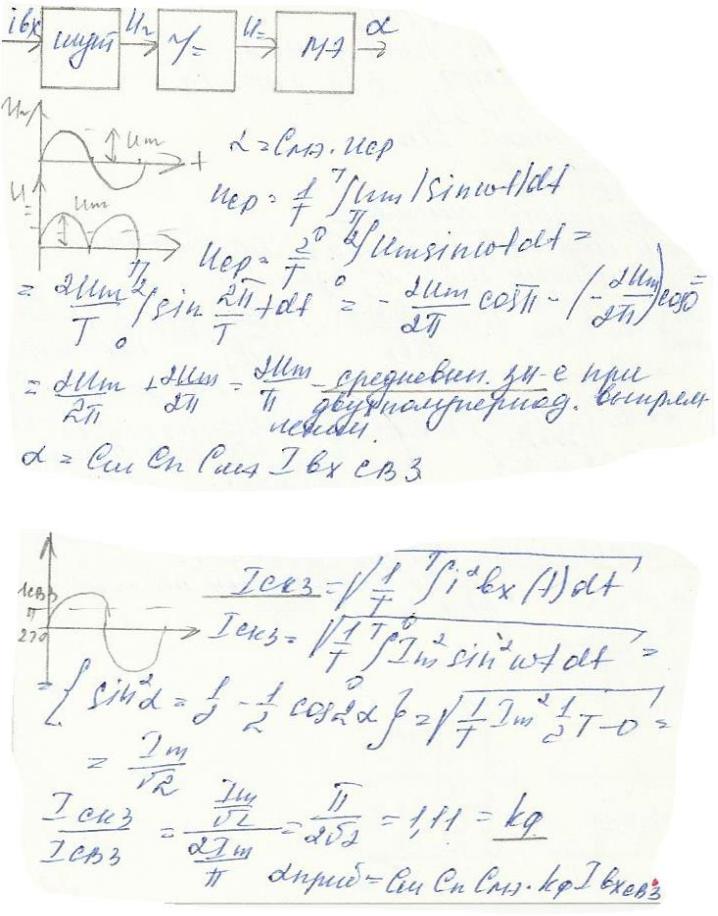 iвх шунт U~ ~/= U= МЭ α
U~ Um t
α = Cмэ · Uср
Uср = 1/T ∫₀ᵀ Um |sin ωt| dt
U= Um
Uср = 2/T ∫₀^(T/2) Um sin ωt dt =
= 2Um/T ∫₀^(T/2) sin 2π/T t dt = - 2Um/2π cos π - (- 2Um/2π) cos 0 =
= 2Um/2π + 2Um/2π = 2Um/π - средневып. зн-е при
двухполупериод. выпрям-
лении.
α = Cш Cп Cмэ Iвх свз
Iскз = √(1/T ∫₀ᵀ i²вх(t) dt)
Iскз = √(1/T ∫₀ᵀ Im² sin² ωt dt) =
= { sin²α = 1/2 - 1/2 cos 2α } = √(1/T Im² 1/2 T - 0 =
= Im/√2
Iскз/Iсвз = (Im/√2)/(2Im/π) = π/2√2 = 1,11 = kф
αприб = Cш Cп Cмэ · kф Iвх свз